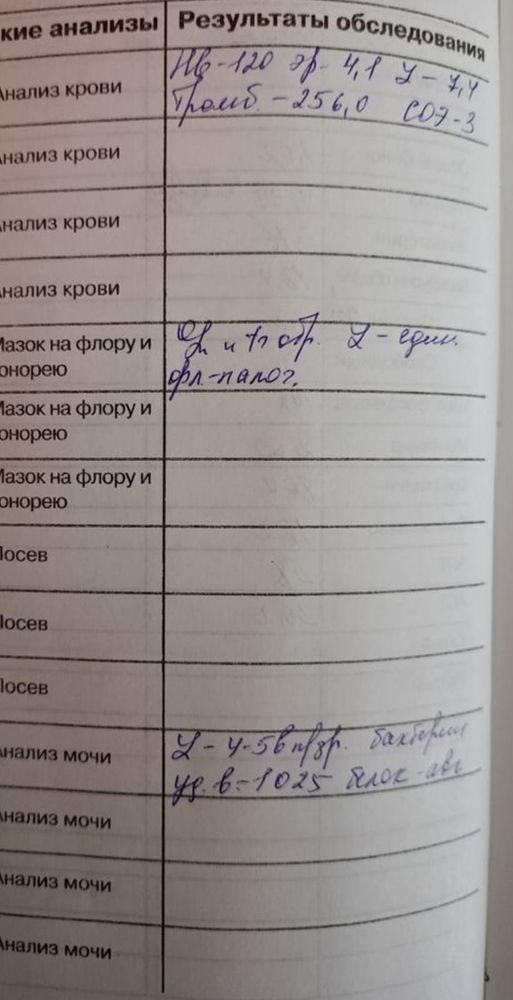 кие анализы Результаты обследования
Анализ крови Нв-120 эр- 4,1 L- 7,4
Тромб.-256,0 СОЭ-3
Анализ крови
Анализ крови
Анализ крови
Мазок на флору и
гонорею
Gn и Tr отр. L-един.
фл.-палоч.
Мазок на флору и
гонорею
Мазок на флору и
гонорею
Посев
Посев
Посев
Анализ мочи L-4-5 в п/зр. бактерии
уд.в.-1025 белок-
Анализ мочи
Анализ мочи
Анализ мочи